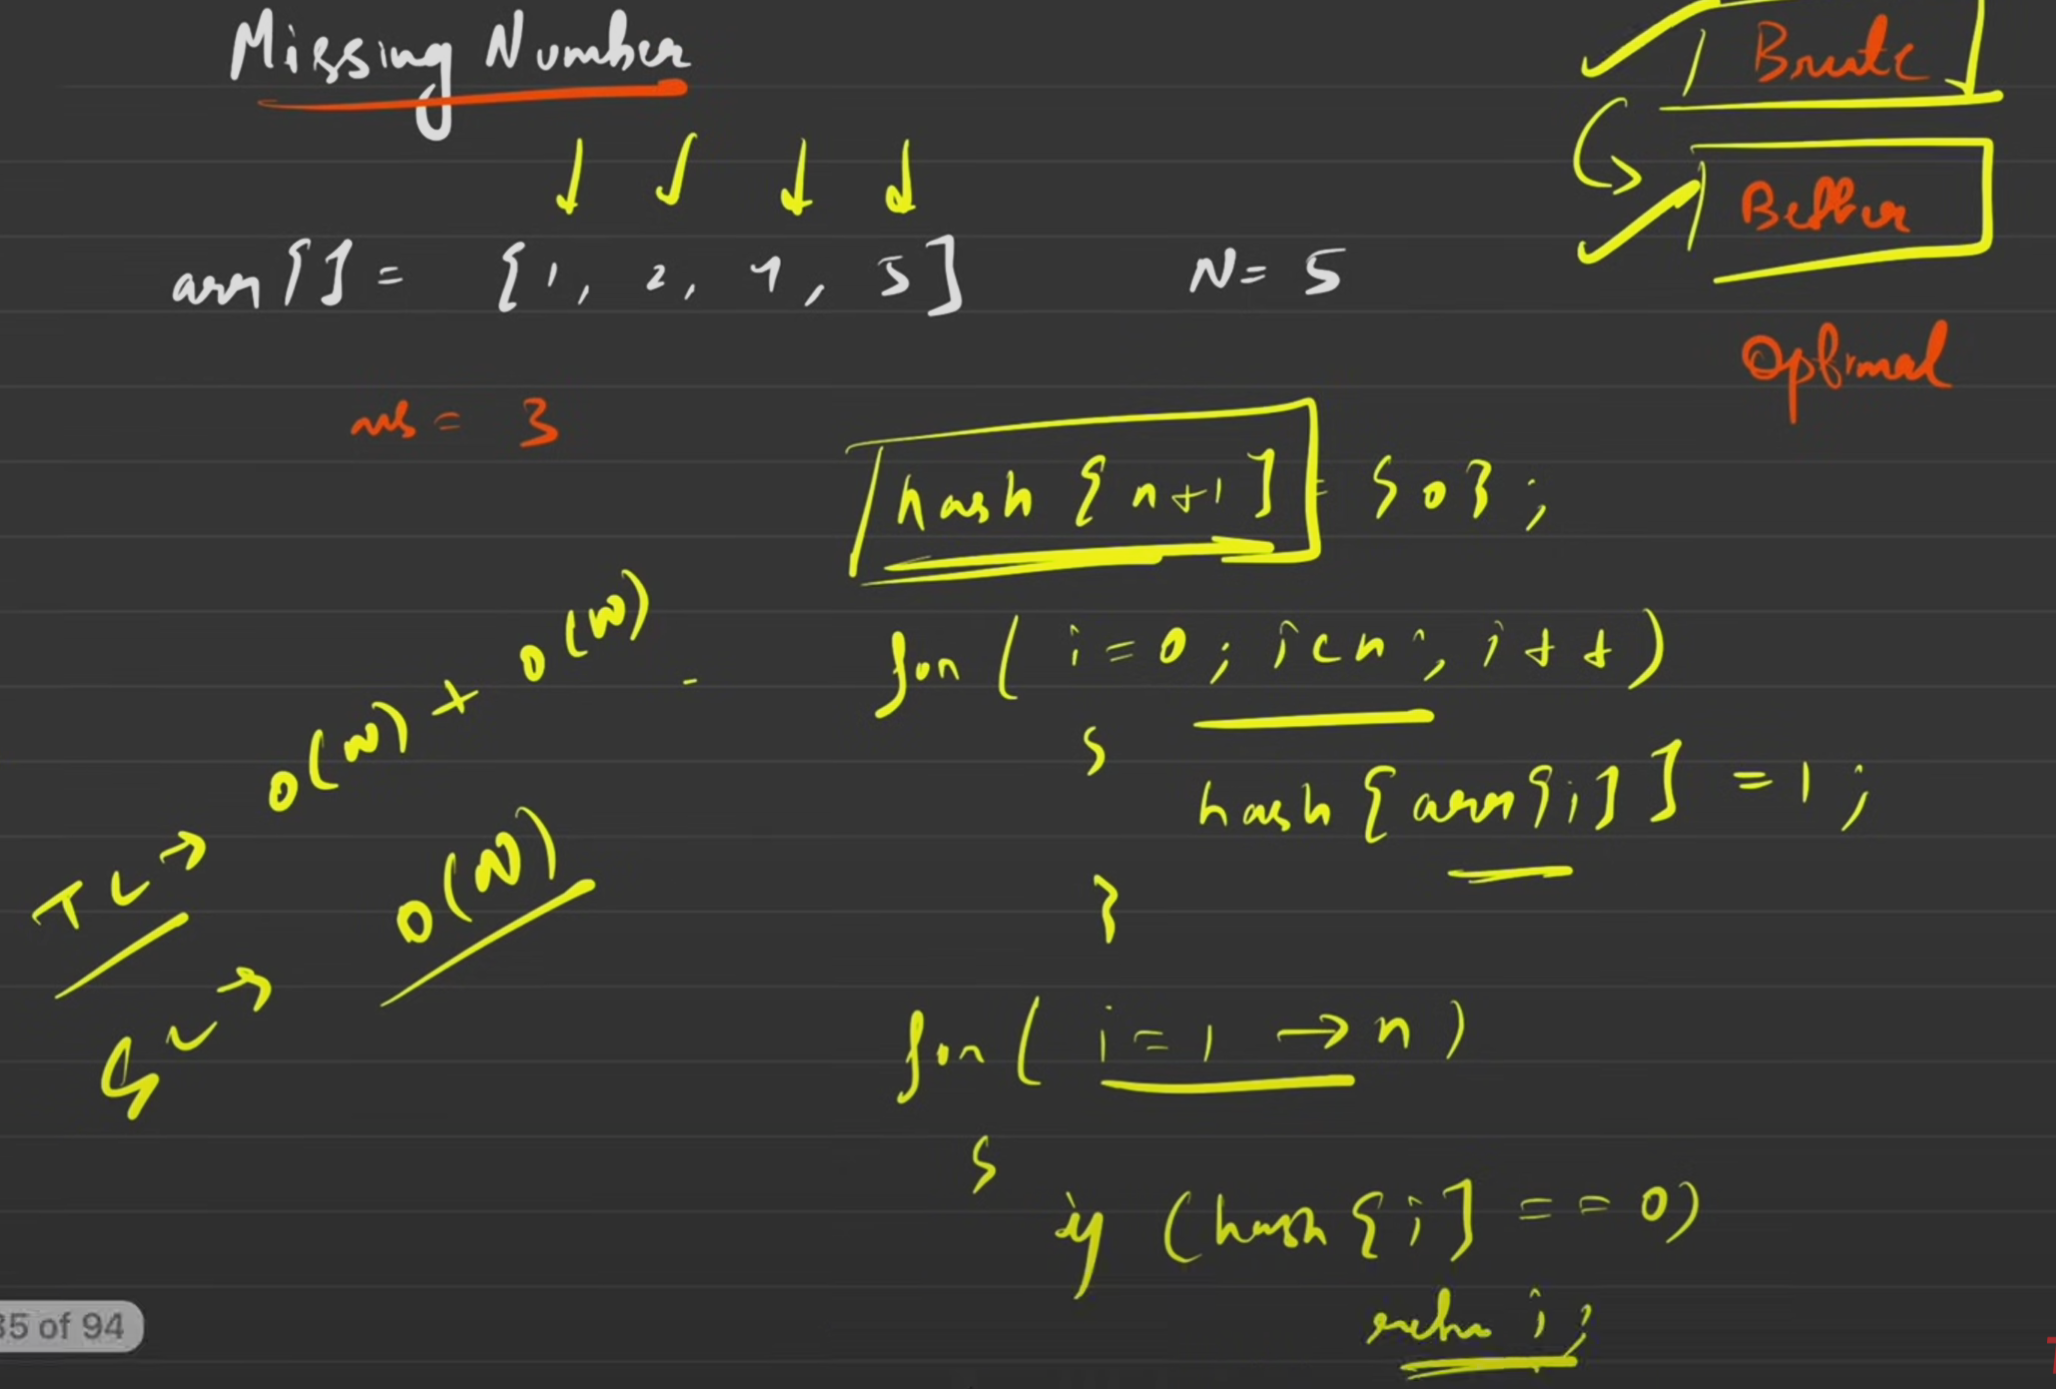 Missing Number
1) Brute
2) Better
Optimal
arr[] = {1, 2, 4, 5}
N = 5
ans = 3
hash[n+1] = {0};
for( i=0; i<n; i++)
{
hash[arr[i]] = 1;
}
for( i=1 → n)
{
if (hash[i] == 0)
return i;
TC → O(N) + O(N)
SC → O(N)
35 of 94